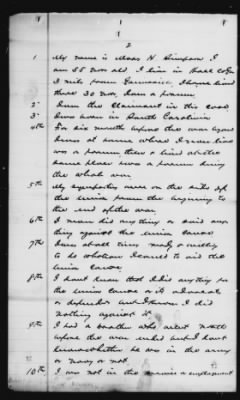 1
1 My name is Moses N Simpson I
am 55 years old I live in Hall Co Ga
I mile from Gainesville, I have lived
there 30 years, I am a farmer
2 I am the Claimant in this case
3 I was born in South Carolina
4th For six months before the war
I was at home where I now live
was a farmer, there & lived at the
same place was a farmer during
the whole war
5th My sympathies were on the side of
the union from the beginning to
the end of the war
6th I never did anything, or said any
thing against the union cause
7th I was at all times ready & willing
to do whatever I could to aid the
union cause
8th I dont know that I did anything for
the union cause or its advocate
or defender but I know I did
nothing against it
9th I had a brother who went north
before the war ended but I dont
know whether he was in the army
or navy or not
10th I was not in the service or employment